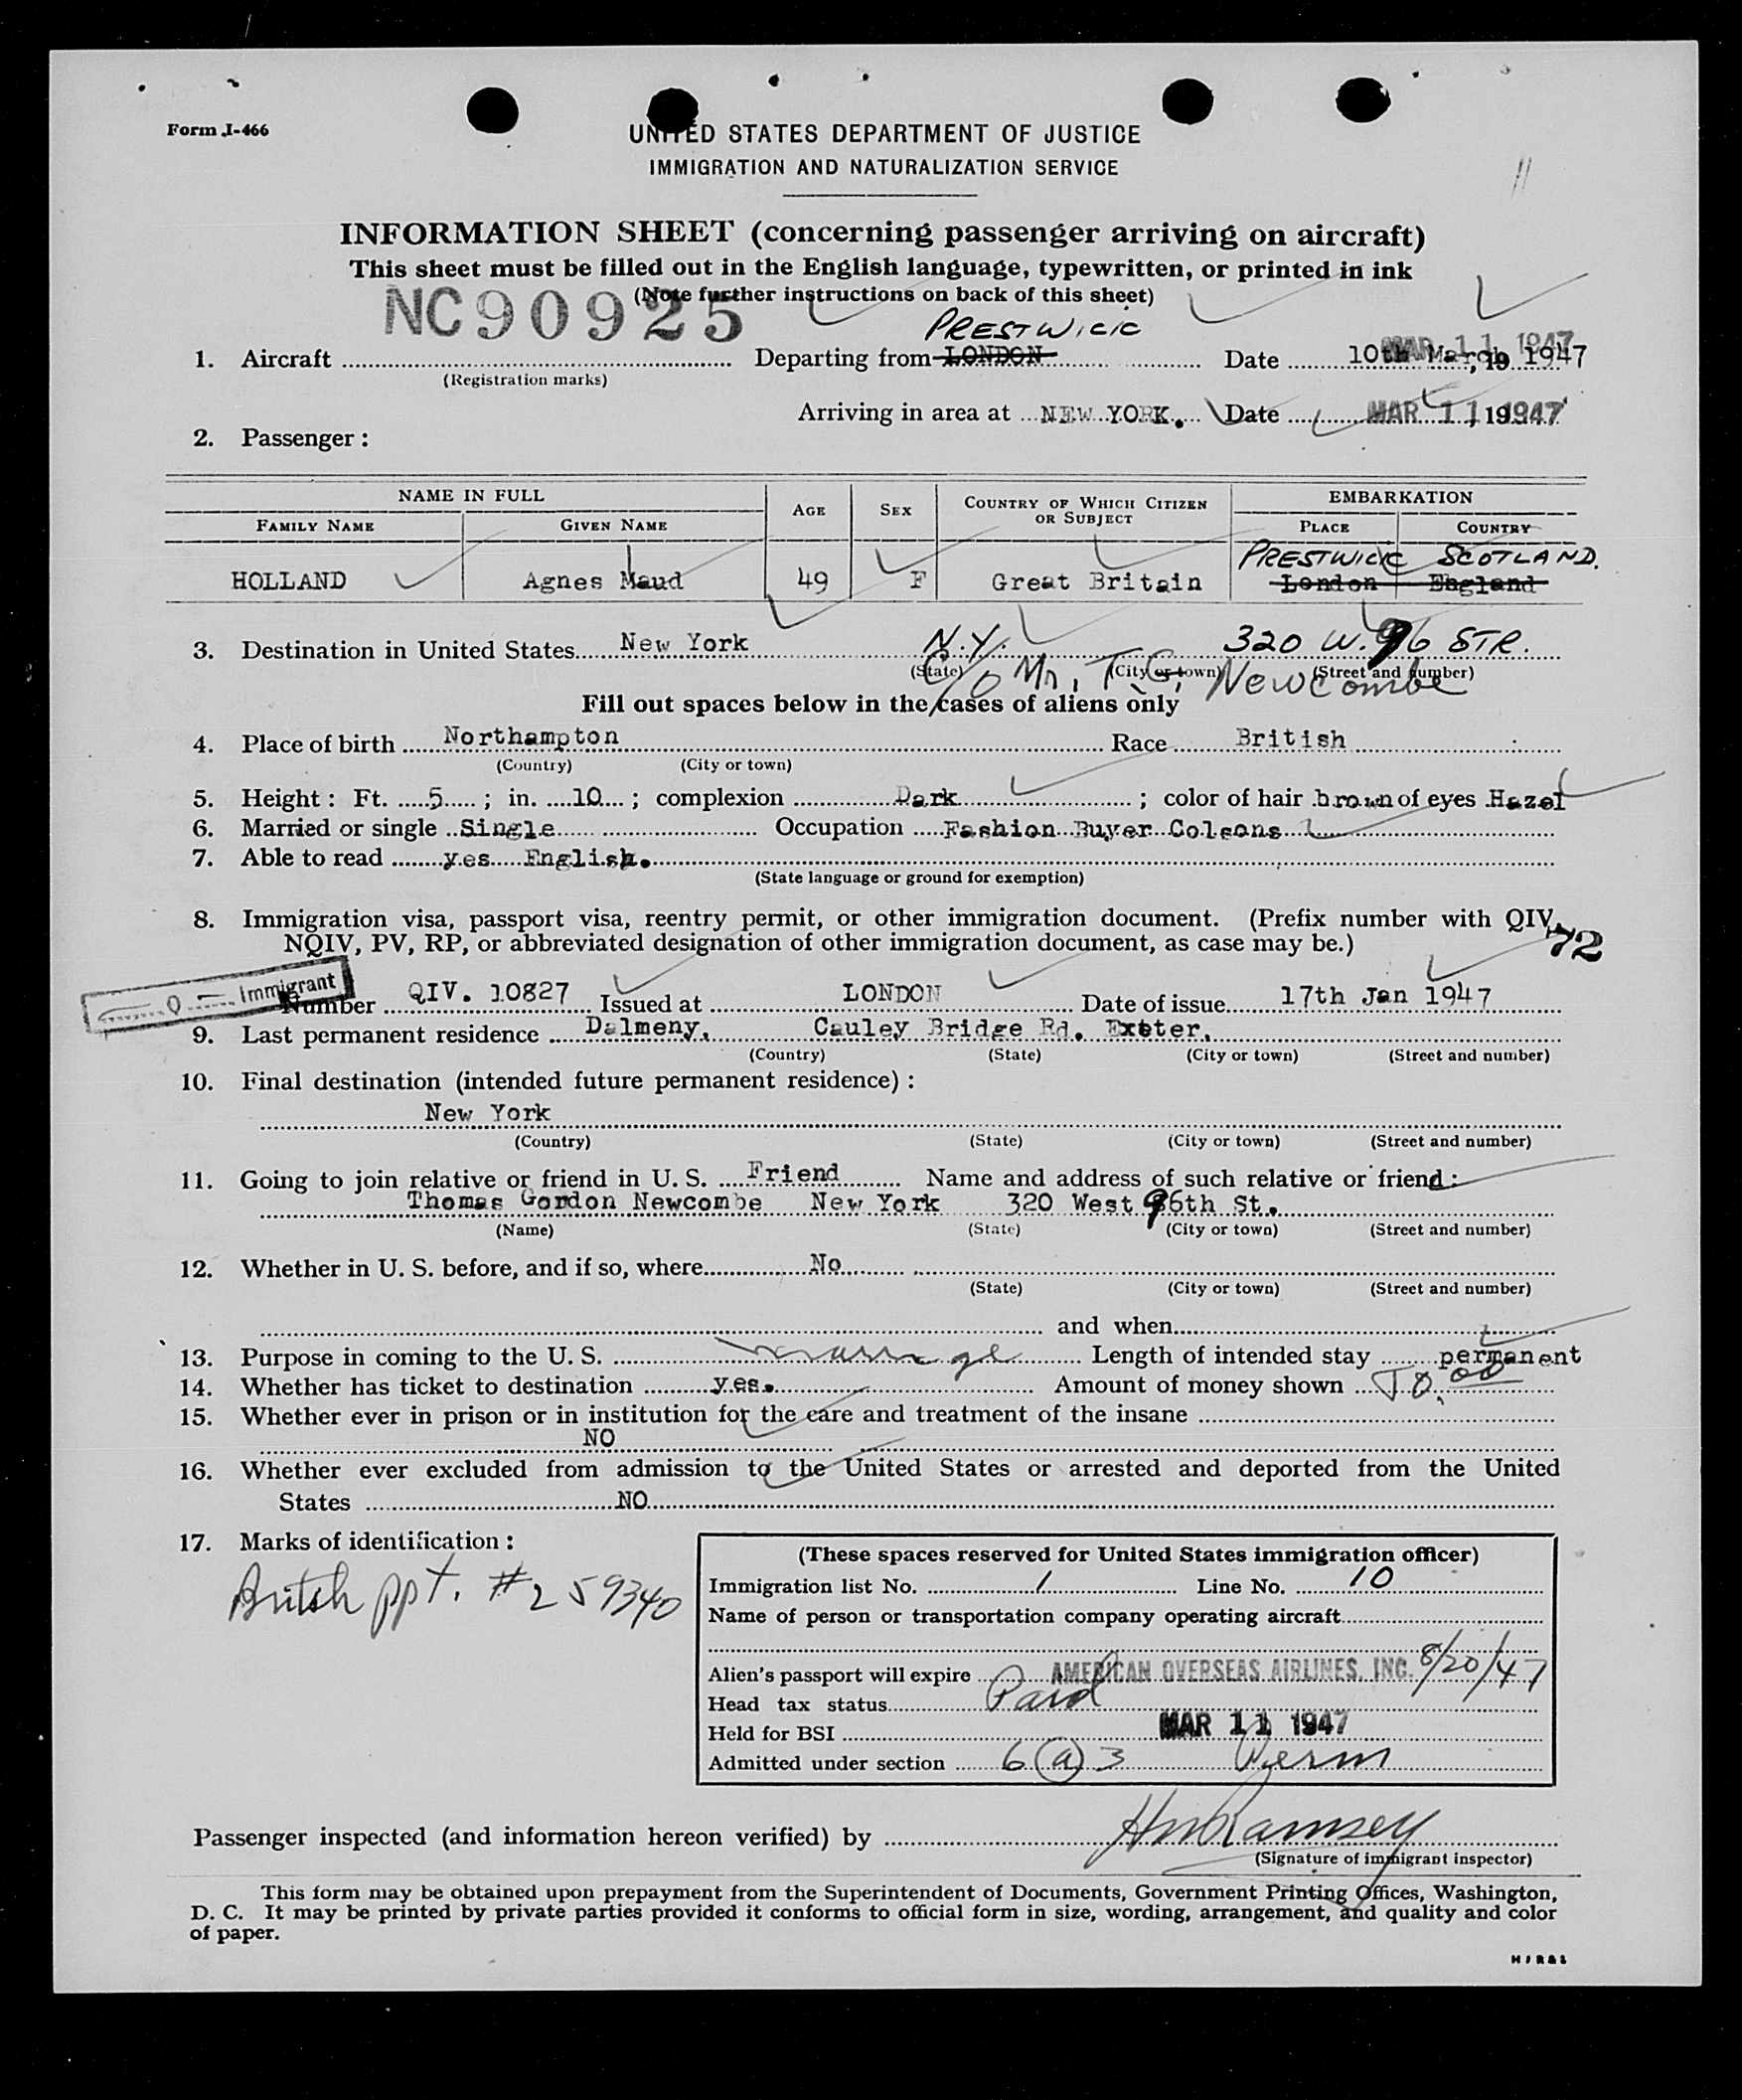 Form I-466
UNITED STATES DEPARTMENT OF JUSTICE
IMMIGRATION AND NATURALIZATION SERVICE
11
INFORMATION SHEET (concerning passenger arriving on aircraft)
This sheet must be filled out in the English language, typewritten, or printed in ink
(Note further instructions on back of this sheet)
NC90925
PRESTWICK
1. Aircraft Departing from LONDON Date 10th March, 19 1947 MAR 11 1947
(Registration marks)
Arriving in area at NEW YORK. Date MAR 11, 19 1947
2. Passenger:
NAME IN FULL AGE SEX COUNTRY OF WHICH CITIZEN OR SUBJECT EMBARKATION
FAMILY NAME GIVEN NAME PLACE COUNTRY
PRESTWICK SCOTLAND.
HOLLAND Agnes Maud 49 F Great Britain London England
3. Destination in United States New York N.Y. 320 W. 96 STR.
(State) (City or town) (Street and number)
C/O Mr. T. G. Newcombe
Fill out spaces below in the cases of aliens only
4. Place of birth Northampton Race British
(Country) (City or town)
5. Height: Ft. 5; in. 10; complexion Dark; color of hair brown of eyes Hazel
6. Married or single Single Occupation Fashion Buyer Colsons
7. Able to read yes English.
(State language or ground for exemption)
8. Immigration visa, passport visa, reentry permit, or other immigration document. (Prefix number with QIV,
NQIV, PV, RP, or abbreviated designation of other immigration document, as case may be.)
72
Q Immigrant
Number QIV. 10827 Issued at LONDON Date of issue 17th Jan 1947
9. Last permanent residence Dalmeny, Cauley Bridge Rd. Exeter.
(Country) (State) (City or town) (Street and number)
10. Final destination (intended future permanent residence):
New York
(Country) (State) (City or town) (Street and number)
11. Going to join relative or friend in U. S. Friend Name and address of such relative or friend:
Thomas Gordon Newcombe New York 320 West 96th St.
(Name) (State) (City or town) (Street and number)
12. Whether in U. S. before, and if so, where No
(State) (City or town) (Street and number)
and when
13. Purpose in coming to the U. S. marriage Length of intended stay permanent
14. Whether has ticket to destination yes. Amount of money shown
15. Whether ever in prison or in institution for the care and treatment of the insane
NO
16. Whether ever excluded from admission to the United States or arrested and deported from the United
States NO
17. Marks of identification:
British ppt. #259340
(These spaces reserved for United States immigration officer)
Immigration list No. 1 Line No. 10
Name of person or transportation company operating aircraft
Alien's passport will expire AMERICAN OVERSEAS AIRLINES, INC. 8/20/47
Head tax status Paid
Held for BSI MAR 11 1947
Admitted under section 6(a)3 Perm
Passenger inspected (and information hereon verified) by HmRamsey
(Signature of immigrant inspector)
This form may be obtained upon prepayment from the Superintendent of Documents, Government Printing Offices, Washington,
D. C. It may be printed by private parties provided it conforms to official form in size, wording, arrangement, and quality and color
of paper.